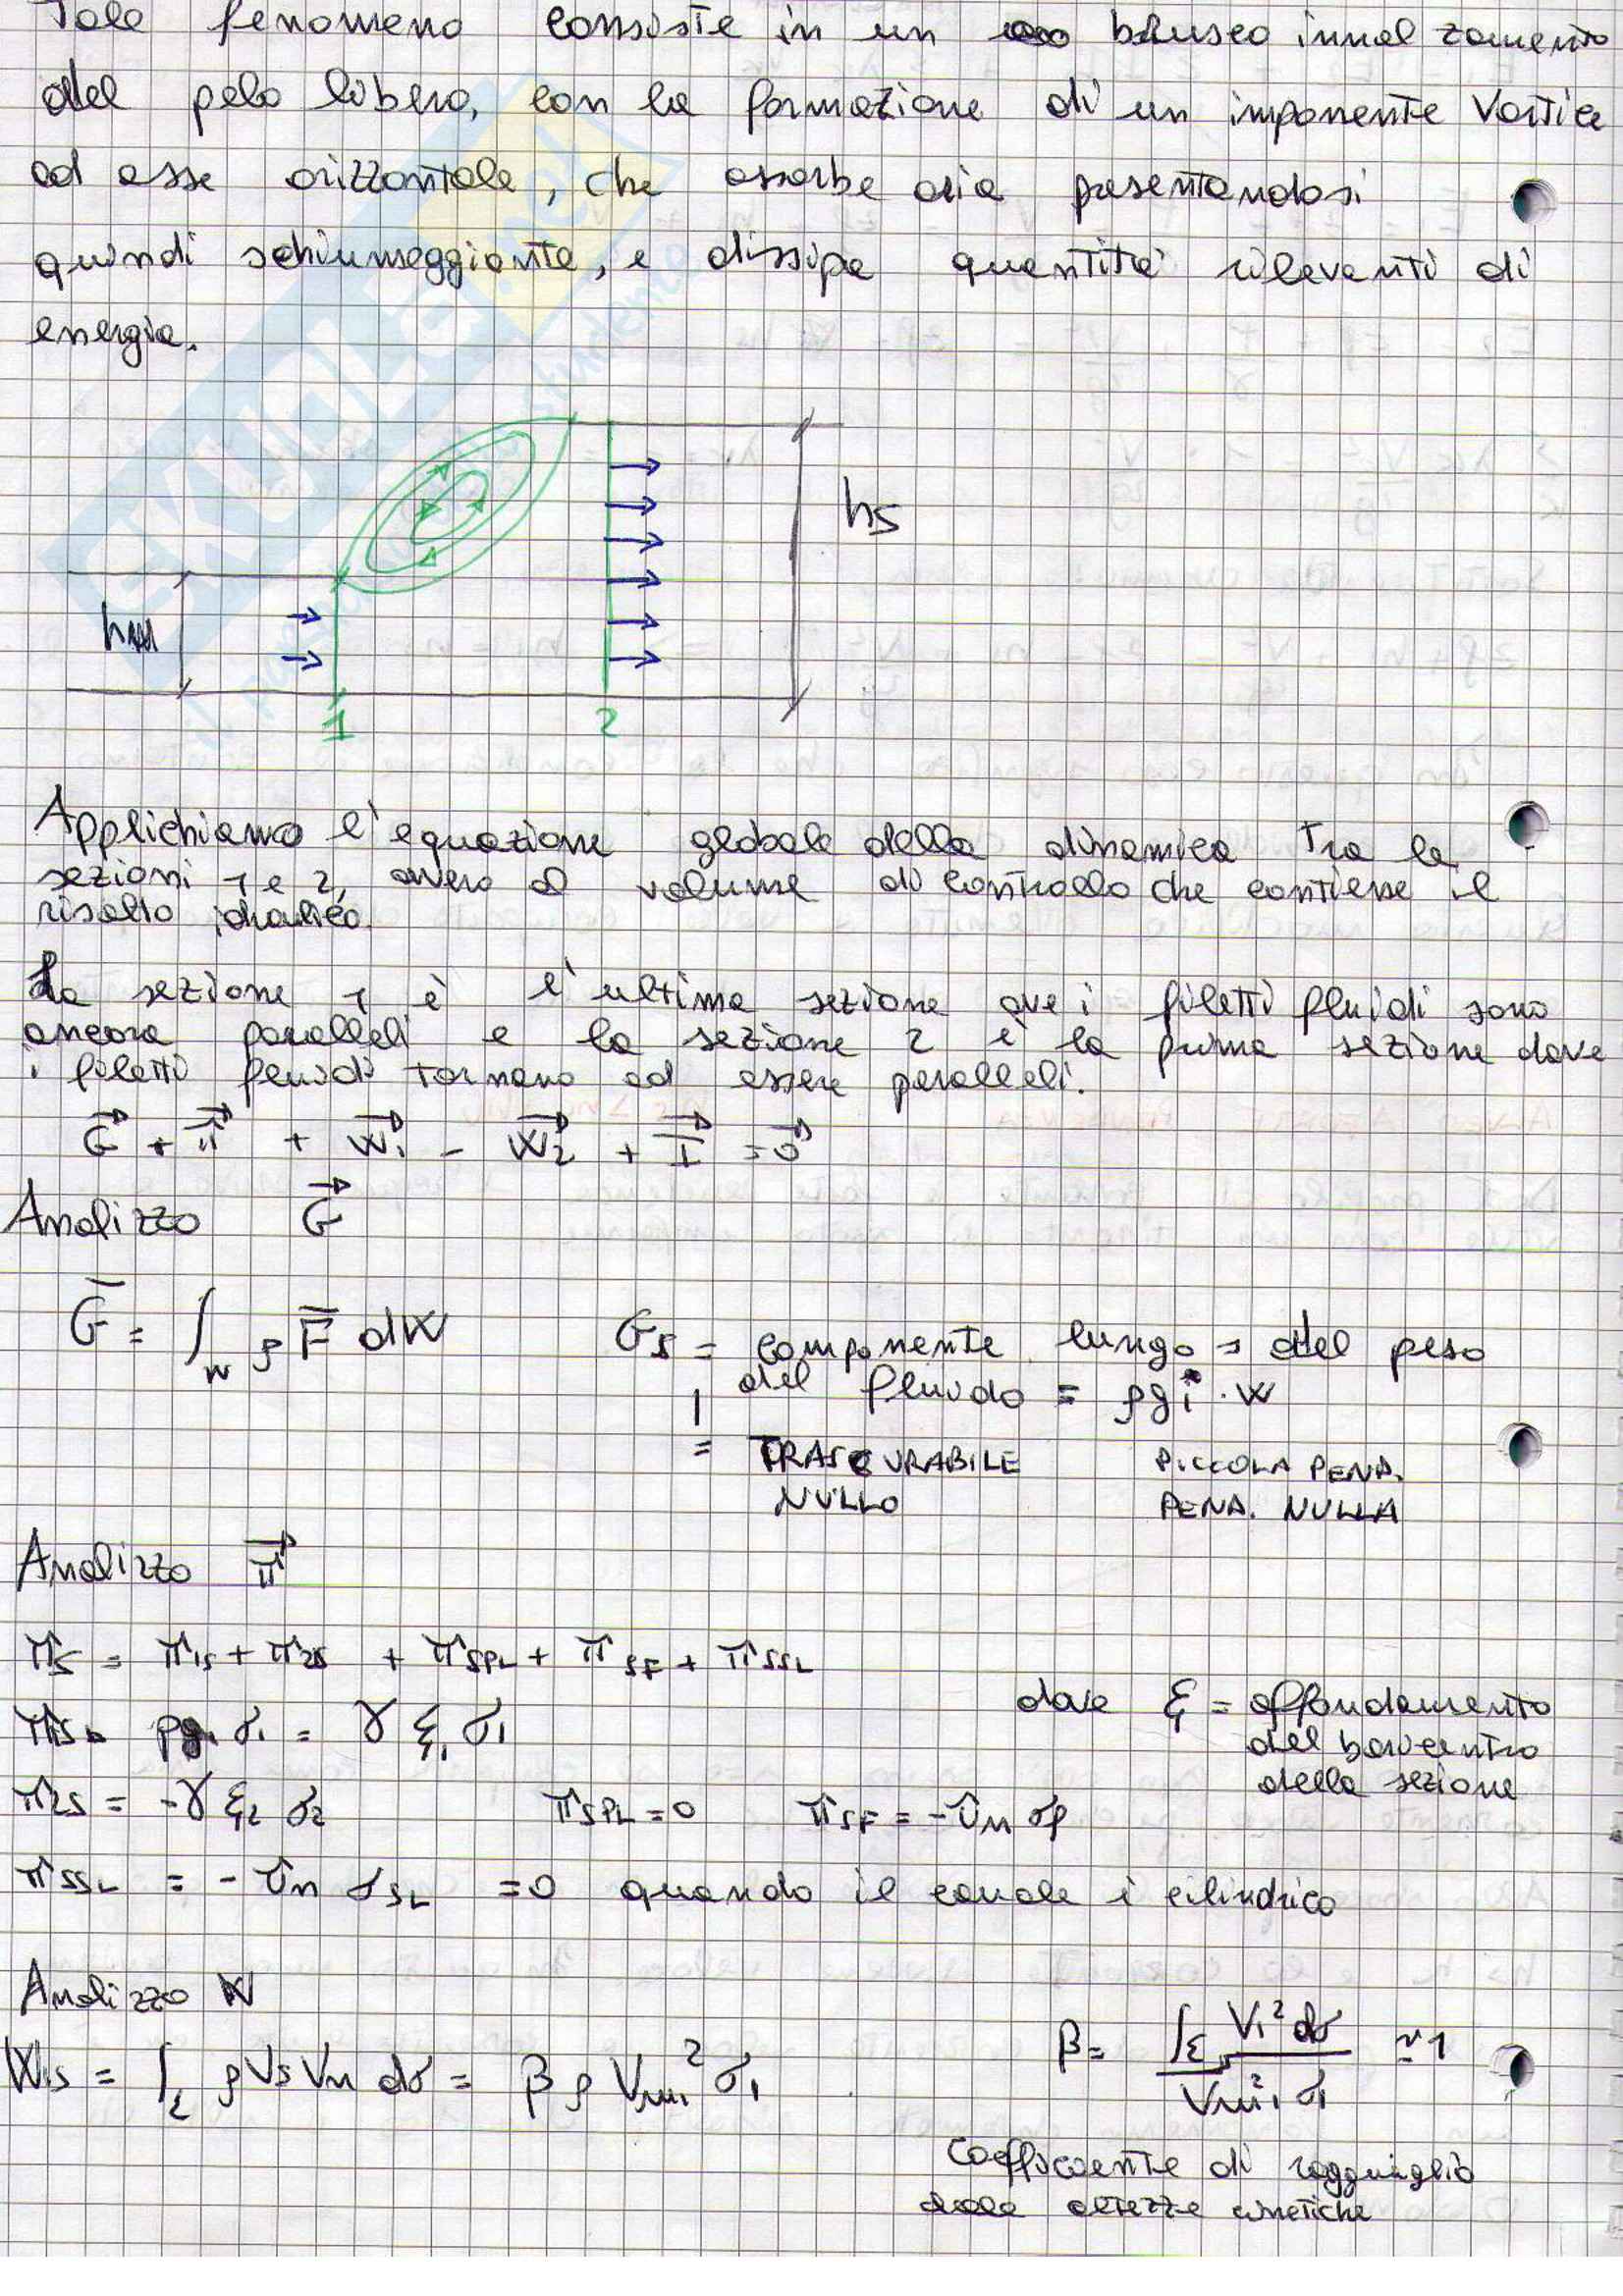 Tale fenomeno consiste in un brusco innalzamento
del pelo libero, con la formazione di un imponente vortice
ad asse orizzontale, che assorbe aria presentandosi
quindi schiumeggiante, e dissipa quantità rilevanti di
energia.
hs
hM
1 2
Applichiamo l'equazione globale della dinamica tra le
sezioni 1 e 2, ovvero al volume di controllo che contiene il
risalto idraulico.
La sezione 1 è l'ultima sezione ove i filetti fluidi sono
ancora paralleli e la sezione 2 è la prima sezione dove
i filetti fluidi tornano ad essere paralleli.
G⃗ + π⃗ + W⃗1 - W⃗2 + I⃗ = 0⃗
Analizzo G⃗
G̅ = ∫w ρ F̅ dW Gs = componente lungo s del peso
del fluido = ρgi · W
= TRASCURABILE PICCOLA PEND.
NULLO PEND. NULLA
Analizzo π⃗
πs = π1s + π2s + πSPL + πSF + πSSL
π1s = pg1 σ1 = γ ξ1 σ1 dove ξ = affondamento
del baricentro
della sezione
π2s = -γ ξ2 σ2 πSPL = 0 πSF = -τm σf
πSSL = - τm σSL = 0 quando il canale è cilindrico
Analizzo W
W1s = ∫Σ ρ Vs Vn dσ = β ρ Vm1² σ1 β = ∫Σ V1² dσ / Vm1² σ1 ≃ 1
Coefficiente di ragguaglio
delle altezze cinetiche